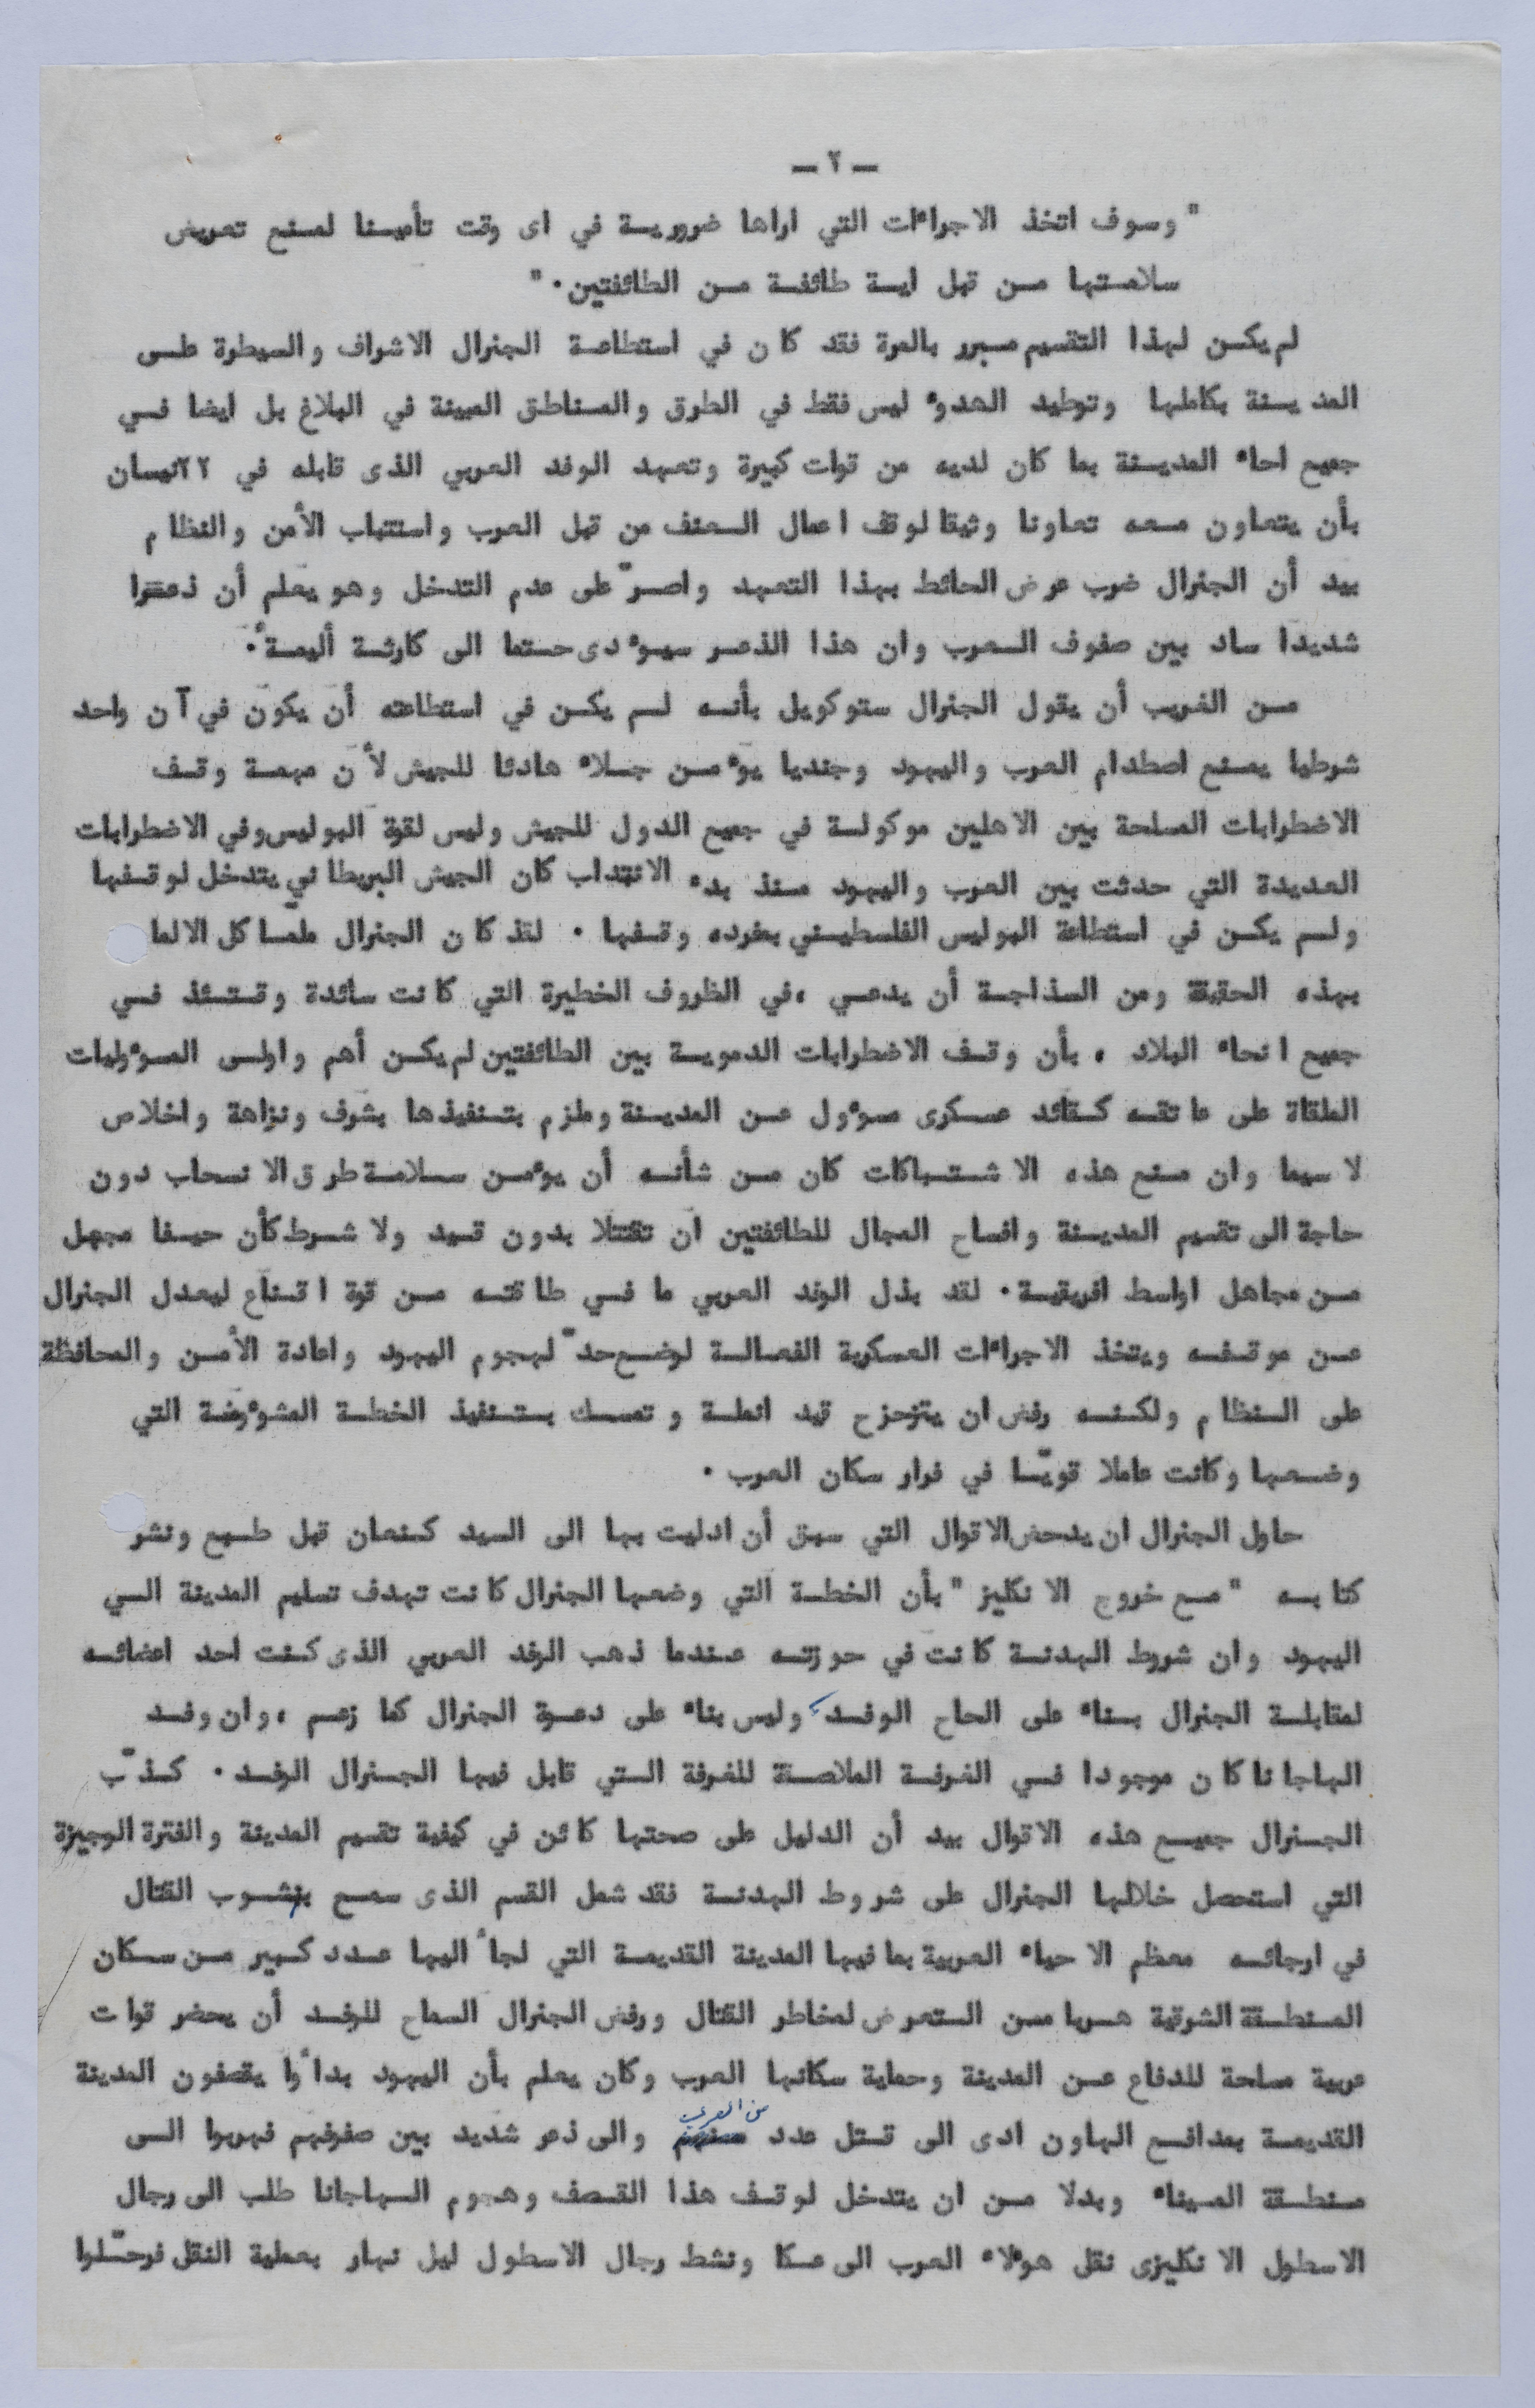 — ٢ —
" وسوف اتخذ الاجراءات التي اراها ضرورية في اى وقت تأمينا لمنع تعريض
سلامتها من قبل اية طائفة من الطائفتين . "
لم يكن لهذا التقسيم مبرر بالمرة فقد كان في استطاعة الجنرال الاشراف والسيطرة على
المدينة بكاملها وتوطيد الهدوء ليس فقط في الطرق والمناطق المبينة في البلاغ بل ايضا في
جميع احاء المدينة بما كان لديه من قوات كبيرة وتعهد الوفد العربي الذى قابله في ٢٢ نيسان
بأن يتعاون معه تعاونا وثيقا لوقف اعمال العنف من قبل العرب واستتباب الأمن والنظام
بيد أن الجنرال ضرب عرض الحائط بهذا التعهد واصرّ على عدم التدخل وهو يعلم أن ذعرا
شديدا ساد بين صفوف العرب وان هذا الذعر سيوءدى حتما الى كارثة أليمة .
من الغريب أن يقول الجنرال ستوكويل بأنه لم يكن في استطاعته أن يكون في آن واحد
شرطيا يمنع اصطدام العرب واليهود وجنديا يوءمن جلاء هادئا للجيش لأن مهمة وقف
الاضطرابات المسلحة بين الاهلين موكولة في جميع الدول للجيش وليس لقوة البوليس وفي الاضطرابات
العديدة التي حدثت بين العرب واليهود منذ بدء الانتداب كان الجيش البريطاني يتدخل لوقفها
ولم يكن في استطاعة البوليس الفلسطيني بمفرده وقفها . لقد كان الجنرال ملمّا كل الالما
بهذه الحقيقة ومن السذاجة أن يدعي ، في الظروف الخطيرة التي كانت سائدة وقتئذ في
جميع انحاء البلاد ، بأن وقف الاضطرابات الدموية بين الطائفتين لم يكن أهم واولى المسوءوليات
الملقاة على عاتقه كقائد عسكرى مسوءول عن المدينة وملزم بتنفيذها بشرف ونزاهة واخلاص
لا سيما وان منع هذه الاشتباكات كان من شأنه أن يوءمن سلامة طرق الانسحاب دون
حاجة الى تقسيم المدينة وافساح المجال للطائفتين ان تقتتلا بدون قيد ولا شرط كأن حيفا مجهل
من مجاهل اواسط افريقية . لقد بذل الوفد العربي ما في طاقته من قوة اقناع ليعدل الجنرال
عن موقفه ويتخذ الاجراءات العسكرية الفعالة لوضع حدّ لهجوم اليهود واعادة الأمن والمحافظة
على النظام ولكنه رفض ان يتزحزح قيد انملة وتمسك بتنفيذ الخطة المشوءومة التي
وضعها وكانت عاملا قويّا في فرار سكان العرب .
حاول الجنرال ان يدحض الاقوال التي سبق أن ادليت بها الى السيد كنعان قبل طبع ونشر
كتابه " مع خروج الانكليز " بأن الخطة التي وضعها الجنرال كانت تهدف تسليم المدينة الى
اليهود وان شروط الهدنة كانت في حوزته عندما ذهب الوفد العربي الذى كنت احد اعضائه
لمقابلة الجنرال بناء على الحاح الوفد، وليس بناء على دعوة الجنرال كما زعم ، وان وفد
الهاجانا كان موجودا في الغرفة الملاصقة للغرفة التي قابل فيها الجنرال الوفد . كذّب
الجنرال جميع هذه الاقوال بيد أن الدليل على صحتها كائن في كيفية تقسيم المدينة والفترة الوجيزة
التي استحصل خلالها الجنرال على شروط الهدنة فقد شمل القسم الذى سمح بنشوب القتال
في ارجائه معظم الاحياء العربية بما فيها المدينة القديمة التي لجأ اليها عدد كبير من سكان
المنطقة الشرقية هربا من التعرض لمخاطر القتال ورفض الجنرال السماح للوفد أن يحضر قوات
عربية مسلحة للدفاع عن المدينة وحماية سكانها العرب وكان يعلم بأن اليهود بدأوا يقصفون المدينة
القديمة بمدافع الهاون ادى الى قتل عدد من العرب والى ذعر شديد بين صفوفهم فهربوا الى
منطقة الميناء وبدلا من ان يتدخل لوقف هذا القصف وهجوم الهاجانا طلب الى رجال
الاسطول الانكليزى نقل هوءلاء العرب الى عكا ونشط رجال الاسطول ليل نهار بعملية النقل فرحّلوا